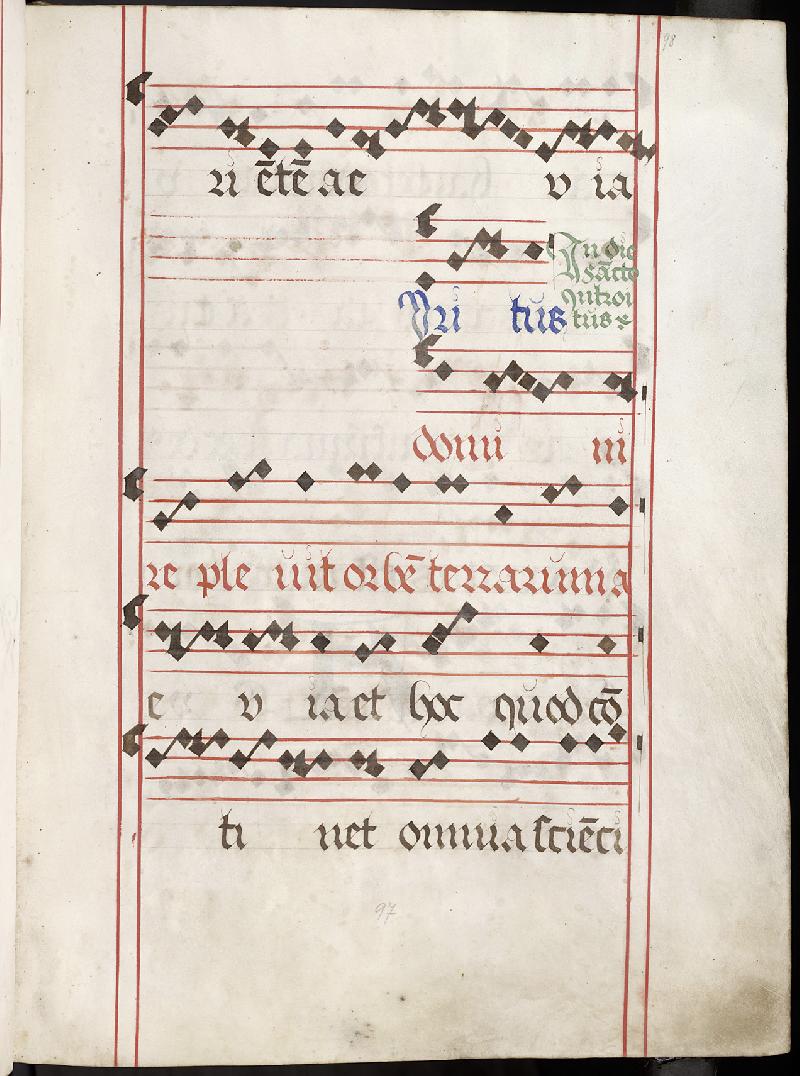 98
ri ētē ae v ia
In die
sācto
qntroi
tus
Pri tus
domi ni
re ple uit orbē terrarum a
e v ia et hoc quod cō
ti net omnia sciēci
97